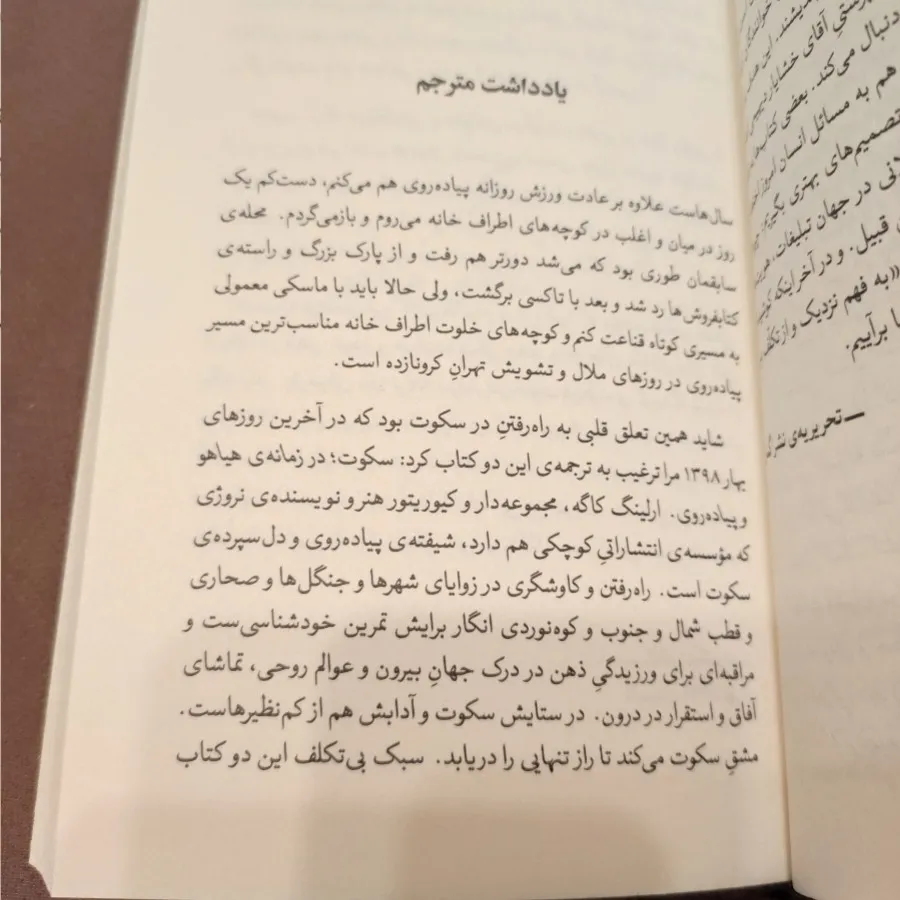 یادداشت مترجم
سال‌هاست علاوه بر عادت ورزش روزانه پیاده‌روی هم می‌کنم، دست‌کم یک
روز در میان و اغلب در کوچه‌های اطراف خانه می‌روم و بازمی‌گردم. محله‌ی
سابقمان طوری بود که می‌شد دورتر هم رفت و از پارک بزرگ و راسته‌ی
کتابفروش‌ها رد شد و بعد با تاکسی برگشت، ولی حالا باید با ماسکی معمولی
به مسیری کوتاه قناعت کنم و کوچه‌های خلوت اطراف خانه مناسب‌ترین مسیر
پیاده‌روی در روزهای ملال و تشویش تهرانِ کرونازده است.
شاید همین تعلق قلبی به راه‌رفتنِ در سکوت بود که در آخرین روزهای
بهار ۱۳۹۸ مرا ترغیب به ترجمه‌ی این دو کتاب کرد: سکوت؛ در زمانه‌ی هیاهو
و پیاده‌روی. ارلینگ کاگه، مجموعه‌دار و کیوریتور هنر و نویسنده‌ی نروژی
که مؤسسه‌ی انتشاراتیِ کوچکی هم دارد، شیفته‌ی پیاده‌روی و دل‌سپرده‌ی
سکوت است. راه‌رفتن و کاوشگری در زوایای شهرها و جنگل‌ها و صحاری
و قطب شمال و جنوب و کوه‌نوردی انگار برایش تمرین خودشناسی‌ست و
مراقبه‌ای برای ورزیدگیِ ذهن در درک جهانِ بیرون و عوالم روحی، تماشای
آفاق و استقرار در درون. در ستایش سکوت و آدابش هم از کم‌نظیرهاست.
مشقِ سکوت می‌کند تا راز تنهایی را دریابد. سبک بی‌تکلف این دو کتاب
آقای خشایار
دنبال می‌کند. بعضی کتاب‌ها
هم به مسائل انسان امروز
تصمیم‌های بهتری
در جهان تبلیغات،
قبیل. و در آخر اینکه
«به فهم نزدیک و از تکلف
برآییم.
— تحریریه‌ی نشر